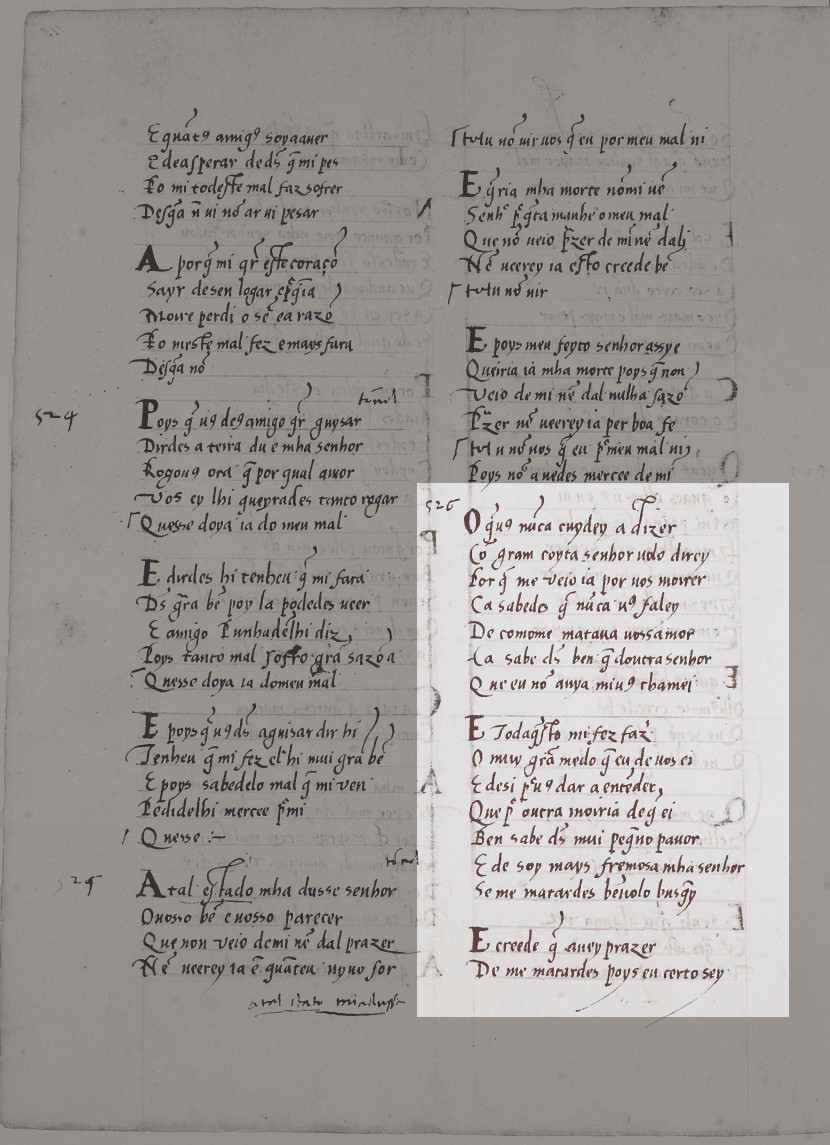 E quãtꝯ amigꝯ soya auer
E de asperar de ds̃ q̃ mi pes
Ko mi todeste mal faz sofrer
Desq̃a ñ ui nõ ar ui pesar
A porq̃ mi qr̃ este coraçõ
Sayr de seu logar
Moire perdi o sẽ e a razõ
Ko meste mal fez e mays fara
Desq̃a nõ
524
tornel
Poys q̃ uꝯ de amigo qr̃ guysar
Dirdes a terra du e mha senhor
Rogouꝯ ora q̃ por qual amor
Vos ey lhi queyrades tanto rogar
Quesse doya ia do meu mal
E dirdes hi tenheu q̃ mi fara
Ds̃ grã bẽ poy la podedes ueer
E amigo punhadelhi diz
Poys tanto mal soffro grã sazõ a
Quesse doya ia do meu mal
E poys q̃ uꝯ ds̃ aguisar dir hi
Tenheu q̃ mi fez el hi mui grã bẽ
E poys sabedelo mal q̃ mi ven
Pedidelhi mercee pr̃ mi
Quesse :~
525
tornel
A tal estado mha dusse senhor
O uosso bẽ e uosso parecer
Que non veio de mi nẽ dal prazer
Nẽ ueerey ia ẽ quãteu uyuo for
atal stato miadusse
tolu nõ uir uos q̃ eu por meu mal ui
E q̃ria mha morte nõ mi uẽ
Senhr̃ pr̃ q̃ta manhe o meu mal
Que nõ ueio pr̃zer de mi nẽ dal
Nẽ ueerey ia esto creede bẽ
tolu nõ uir
E poys meu feyto senhor assy e
Queiria ia mha morte poys q̃ non
Veio de mi nẽ dal nulha sazõ
Pr̃zer nẽ ueerey ia per boa fe
tolu nõ uos q̃ eu pr̃ meu mal ui
Poys nõ auedes mercee de mi
526
O q̃ uꝯ nũca cuydey a dizer
Cõ gram coyta senhor uolo direy
Por q̃ me veio ia por uos morrer
Ca sabedes q̃ nũca uꝯ faley
De comome mataua uossamor
Ca sabe ds̃ ben q̃ doutra senhor
Que eu nõ auya miuꝯ chamei
E Todaq̃sto mi fez faz̃
O muy grã medo q̃ eu de uos ei
E desi pr̃ uꝯ dar a entẽder
Que pr̃ outra moiria de q̃ ei
Ben sabe ds̃ mui peq̃no pauor
E de soy mays fremosa mha senhor
Se me matardes beiuolo busq̃y
E creede q̃ auey prazer
De me matardes poys eu certo sey